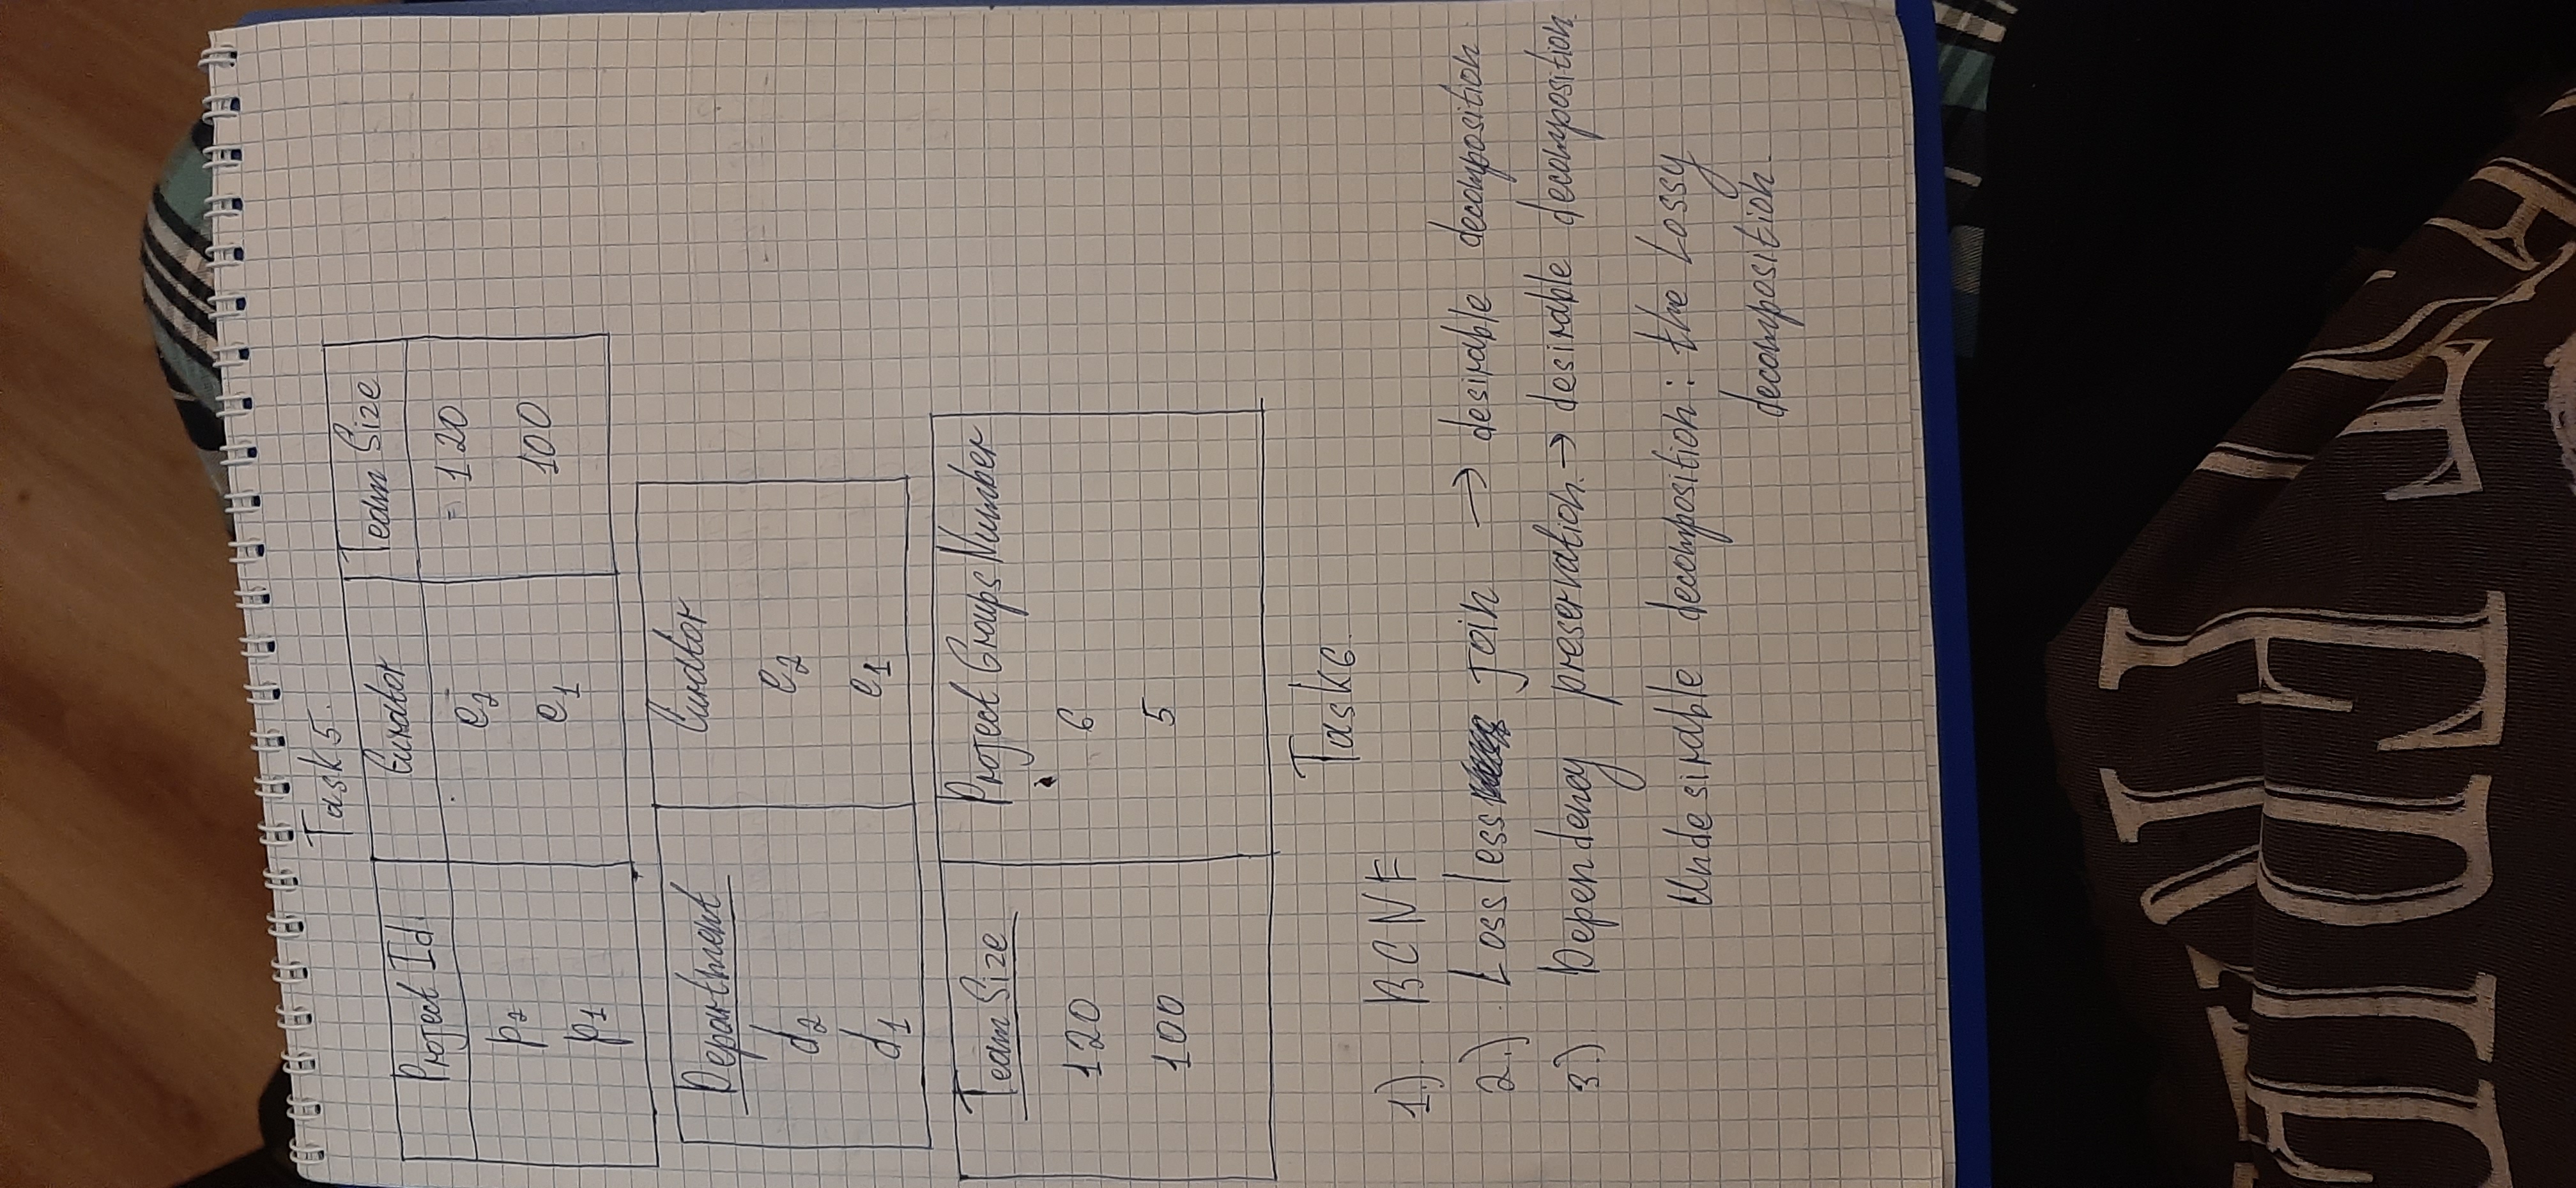 Task 5.
Project Id Curator Team Size
p2 e2 120
p1 e1 100
Department Curator
d2 e2
d1 e1
Team Size Project Groups Number
120 6
100 5
Task 6.
1.). BCNF
2.). Lossless join → desirable decomposition
3.). Dependency preservation. → desirable decomposition.
Undesirable decomposition: the Lossy
decomposition.